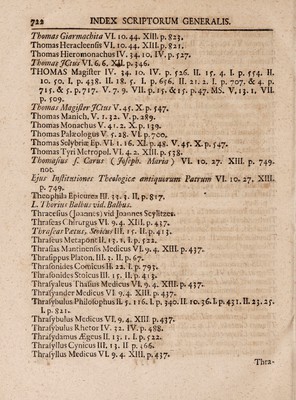 722 INDEX SCRIPTORUM GENERALIS.
Thomas Giarmochita VI. 10. 44. XIII. p. 823.
Thomas Heracleensis VI. 10. 44. XIII. p. 821.
Thomas Hieromonachus IV. 34. 10. IV. p. 527.
Thomas JCtus VI. 6. 6. XII. p. 346.
THOMAS Magister IV. 34. 10. IV. p. 526. II. 15. 4. I. p. 554. II.
10. 50. I. p. 438. II. 18. 5. I. p. 656. II. 21. 2. I. p. 707. & 4. p.
715. & 5. p. 717. V. 7. 9. VII. p. 15. & 15. p. 47. MS. V. 13. 1. VII.
p. 509.
Thomas Magister JCtus V. 45. X. p. 547.
Thomas Manich. V. 1. 32. V. p. 289.
Thomas Monachus V. 41. 2. X. p. 139.
Thomas Palæologus V. 5. 28. VI. p. 700.
Thomas Solybriæ Ep. VI. 1. 16. XI. p. 48. V. 45. X. p. 547.
Thomas Tyri Metropol. VI. 4. 2. XIII. p. 538.
Thomasius s. Carus (Joseph. Maria) VI. 10. 27. XIII. p. 749.
not.
Ejus Institutiones Theologicæ antiquorum Patrum VI. 10. 27. XIII.
p. 749.
Theophila Epicurea III. 33. 3. II. p. 817.
L. Thorius Balbus vid. Balbus.
Thracesius (Joannes) vid Joannes Scylitzes.
Thraseas Chirurgus VI. 9. 4. XIII. p. 437.
Thraseas Pætus, Stoicus III. 15. II. p. 413.
Thraseus Metapont II. 13. 1. I. p. 522.
Thrasias Mantinensis Medicus VI. 9. 4. XIII. p. 437.
Thrasippus Platon. III. 3. II. p. 67.
Thrasonides Comicus II. 22. I. p. 793.
Thrasonides Stoicus III. 15. II. p. 413.
Thrasyalcus Thasius Medicus VI. 9. 4. XIII. p. 437.
Thrasyander Medicus VI. 9. 4. XIII. p. 437.
Thrasybulus Philosophus II. 5. 116. I. p. 340. II. 10. 36. I. p. 431. II. 23. 25.
I. p. 821.
Thrasybulus Medicus VI. 9. 4. XIII. p. 437.
Thrasybulus Rhetor IV. 32. IV. p. 488.
Thrasydamus Ægeus II. 13. 1. I. p. 522.
Thrasyllus Cynicus III. 13. II p. 166.
Thrasyllus Medicus VI. 9. 4. XIII. p. 437.
Thra-